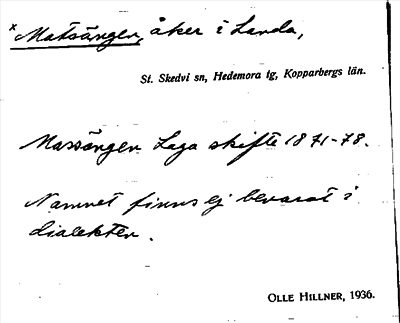 * Matsängen, åker i Landa,
St. Skedvi sn, Hedemora tg, Kopparbergs län.
Massängen Laga skifte 1871-78.
Namnet finns ej bevarat i
dialekten.
OLLE HILLNER, 1936.